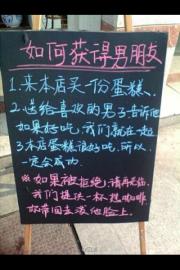 如何获得男朋友
1.来本店买一份蛋糕.
2.送给喜欢的男子告诉他
如果好吃,我们就在一起
3.本店蛋糕很好吃,所以
一定会成功.
※如果被拒绝,请再光临.
我们提供一杯热咖啡
你带回去泼他脸上.